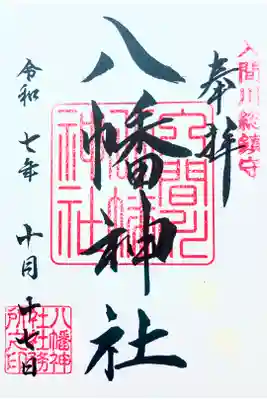 入間川総鎮守
奉拝
八幡神社
令和七年 十月 十七日
入間川
八幡
神社
八幡神
社社務
所之印